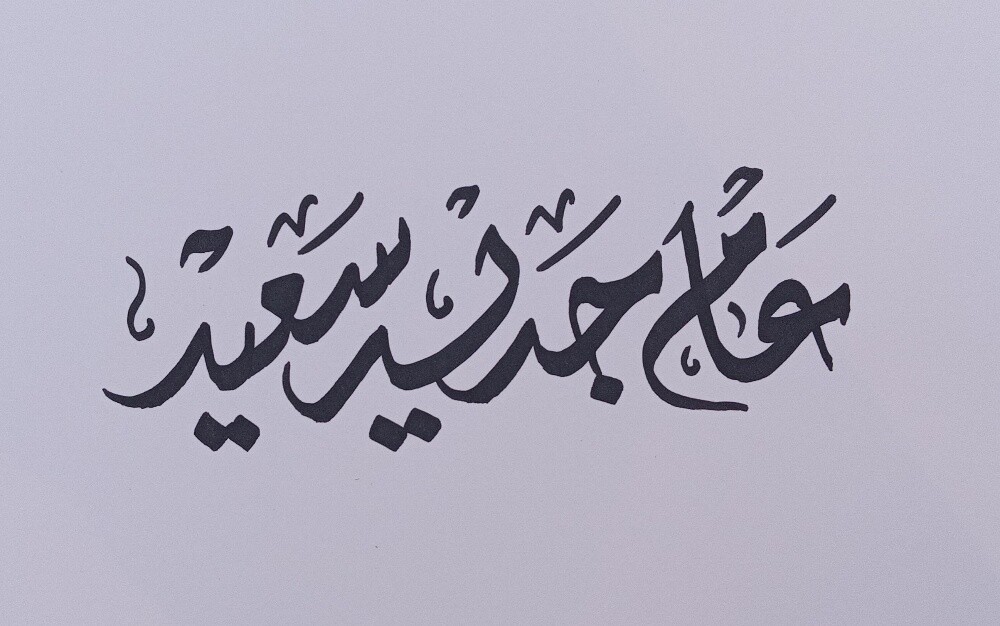 عام جديد سعيد